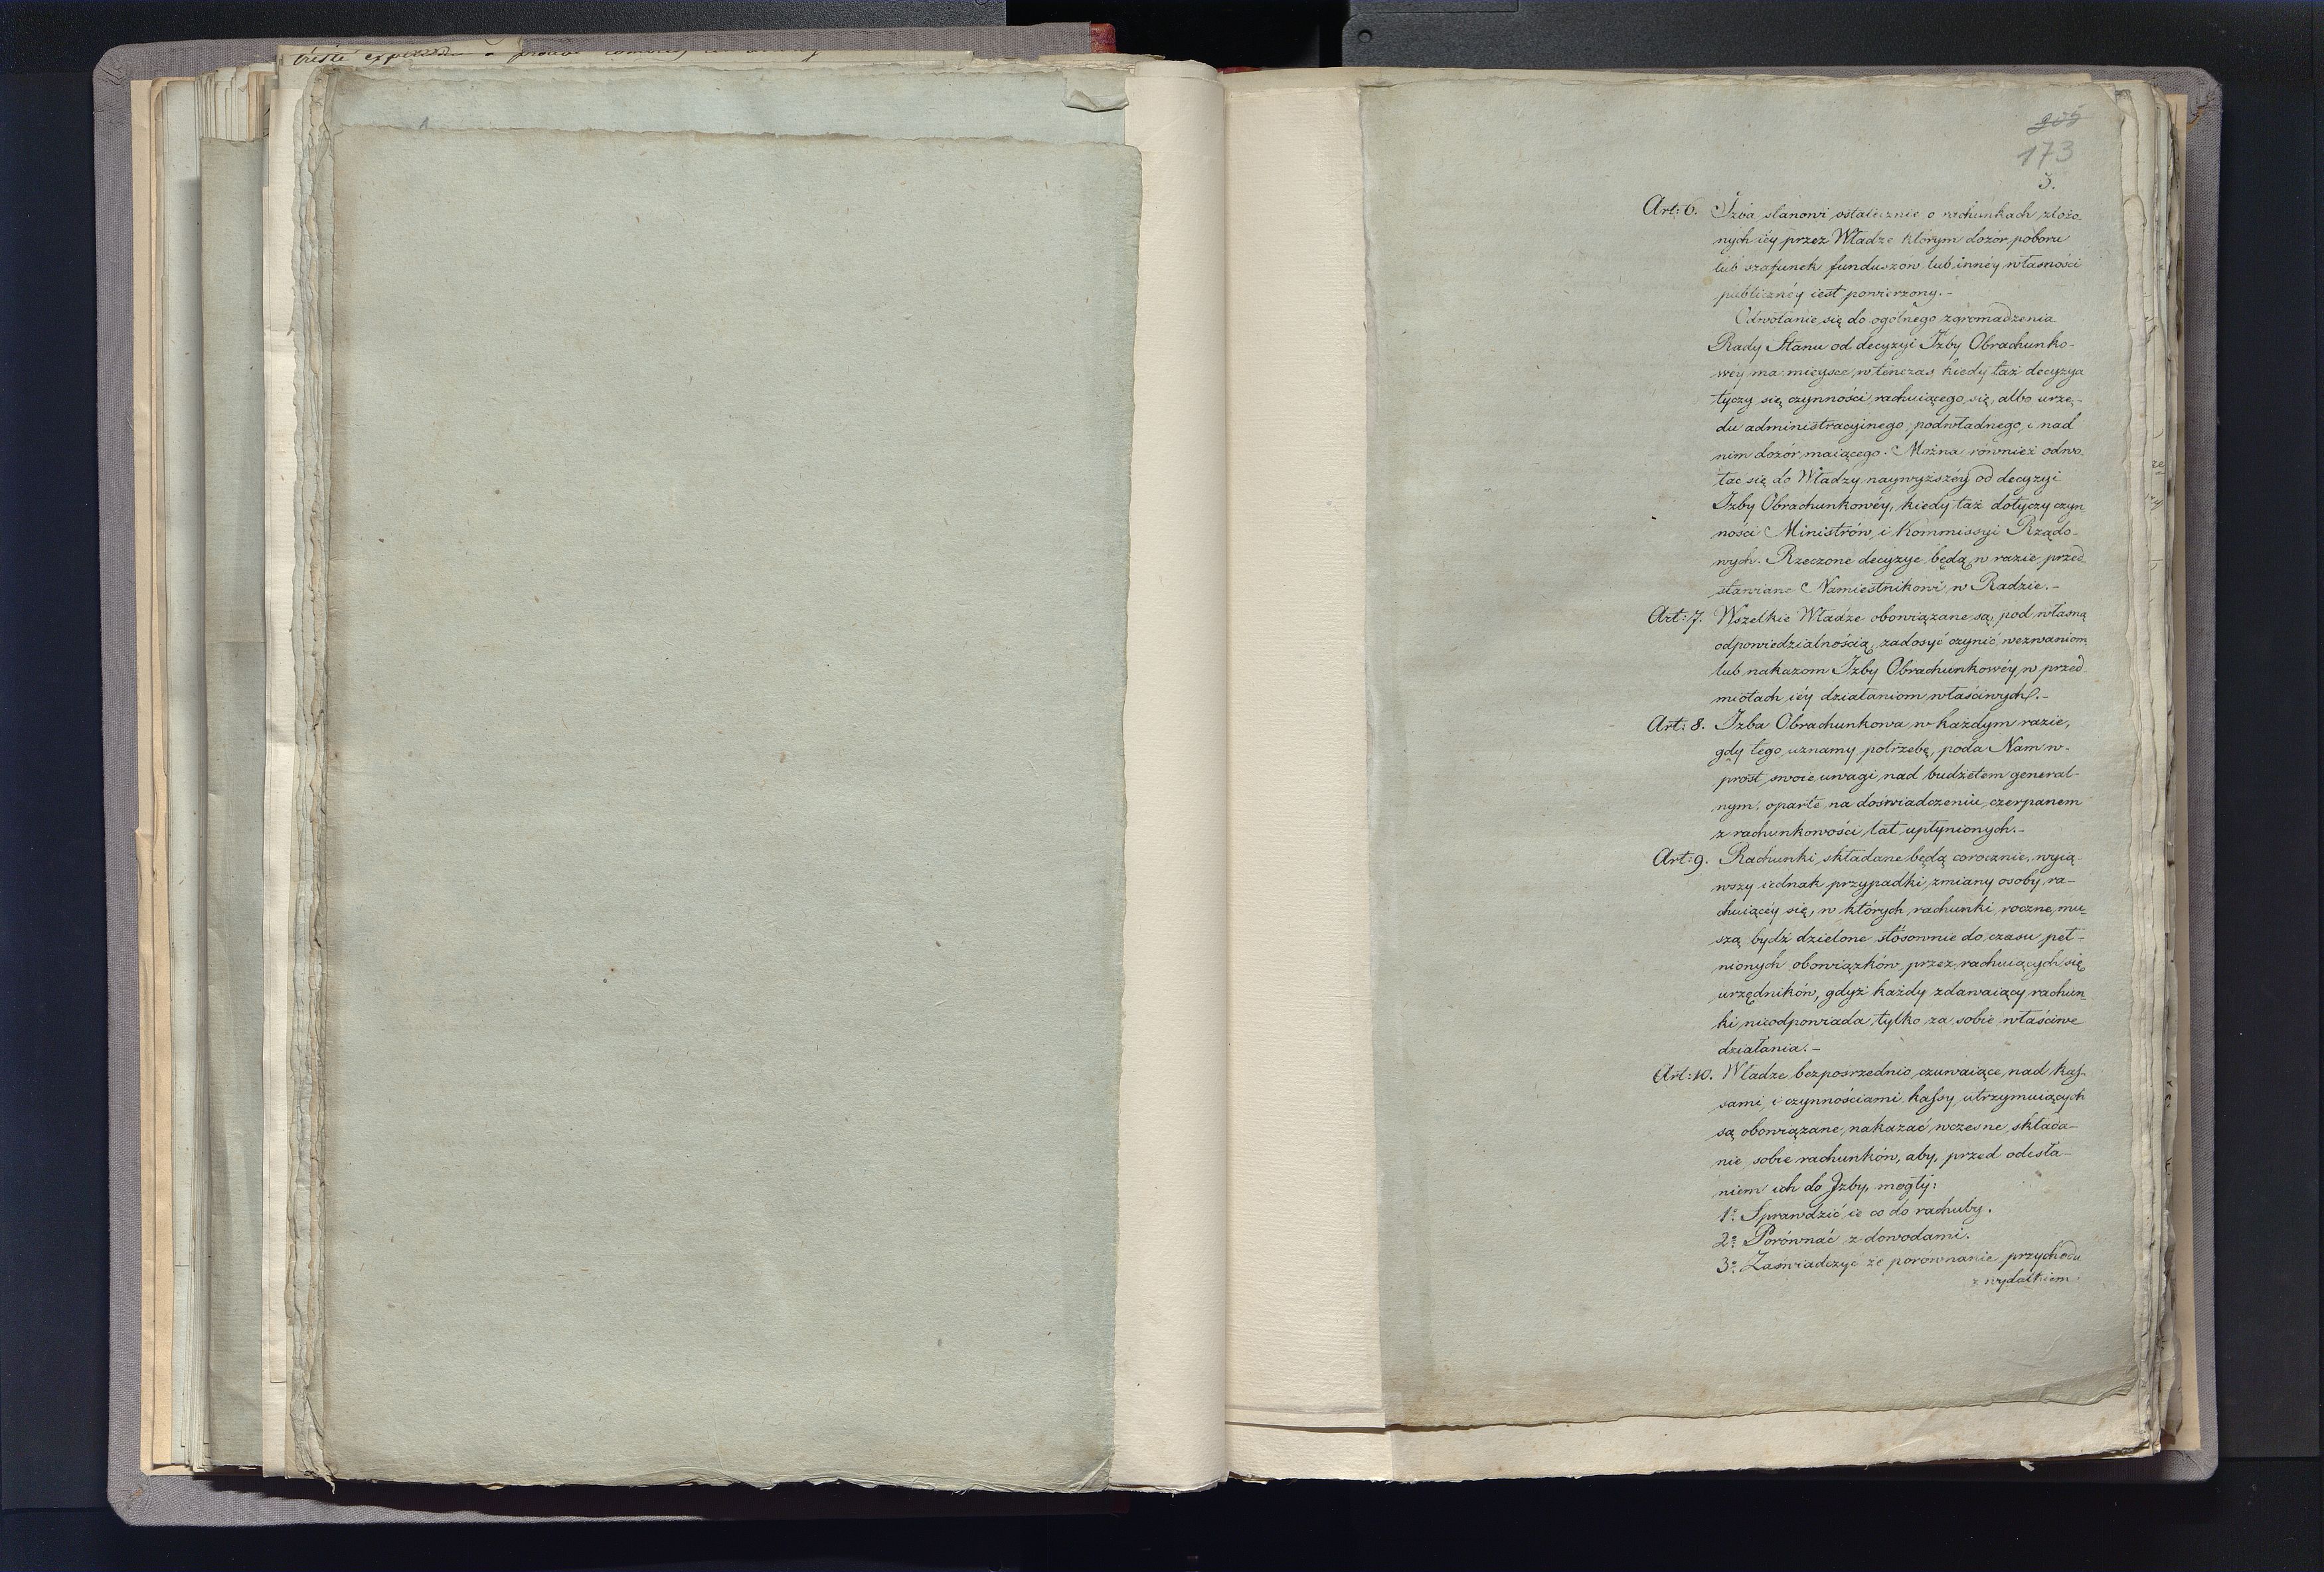 205
173
3.
Art: 6. Izba stanowi ostatecznie o rachunkach złożo-
nych iéy przez Władze którym dozór poboru
lub szafunek funduszów lub innéy własności
publicznéy iest powierzony.-
Odwołanie się do ogólnego zgromadzenia
Rady Stanu od decyzyi Izby Obrachunko-
wéy ma mieysce wtenczas kiedy taż decyzya
tyczy się czynności rachuiącego się, albo urzę-
du administracyinego podwładnego, i nad
nim dozór maiącego. Można również odwo-
łać się do Władzy naywyższéy od decyzyi
Izby Obrachunkowéy, kiedy taż dotyczy czyn
ności Ministrów i Kommissyi Rządo-
wych. Rzeczone decyzye będą w razie przed
stawiane Namiestnikowi w Radzie.-
Art: 7. Wszelkie Władze obowiązane są, pod własną
odpowiedzialnością, zadosyć czynić wezwaniom
lub nakazom Izby Obrachunkowéy, w przed-
miotach iéy działaniom właściwych.-
Art: 8. Izba Obrachunkowa w każdym razie,
gdy tego uznamy potrzebę, poda Nam w-
prost swoie uwagi nad budżetem general-
nym, oparte na doświadczeniu czerpanem
z rachunkowości lat upłynionych.-
Art: 9. Rachunki składane będą corocznie, wyią-
wszy iednak przypadki zmiany osoby ra-
chuiącéy się, w których rachunki roczne mu-
szą bydź dzielone stósownie do czasu peł-
nionych obowiązków przez rachuiących się
urzędników, gdyż każdy zdawaiący rachun-
ki nieodpowiada tylko za sobie właściwe
działania.-
Art: 10. Władze bezpośrzednio czuwaiące nad kas-
sami i czynnościami kassy utrzymuiących
są obowiązane nakazać wczesne składa-
nie sobie rachunków, aby, przed odesła-
niem ich do Izby, mogły:
1o. Sprawdzić ie co do rachuby.
2o. Porównać z dowodami.
3o. Zaświadczyć że porównanie przychodu
z wydatkiem